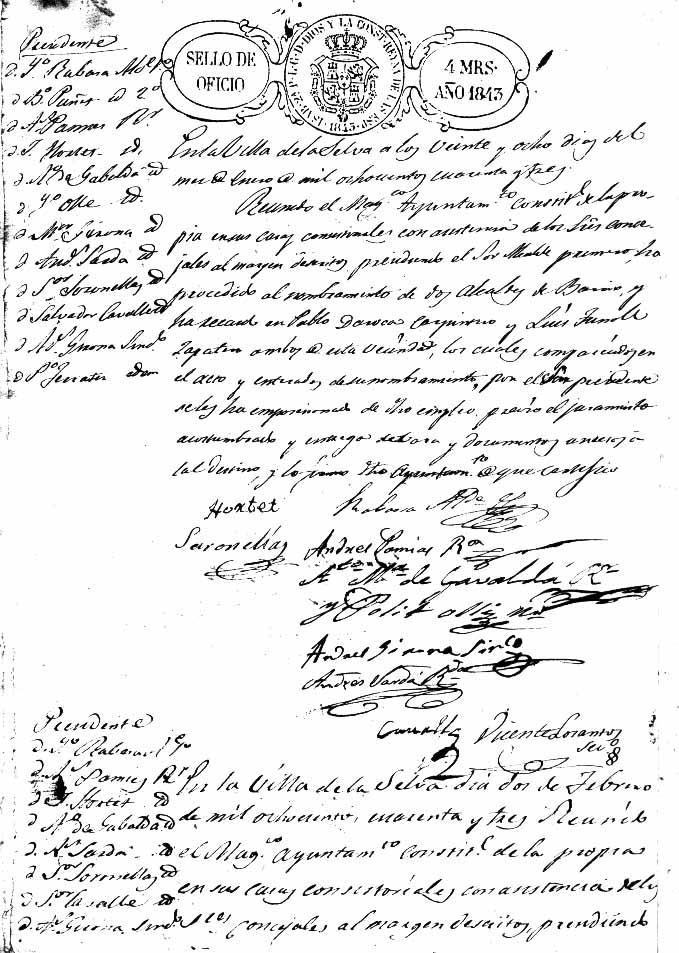 SELLO DE OFICIO
ISAB. 2ª P.L.G. D DIOS Y LA CONST. REYNA DE LAS ESP. 1843.
4 MRS. AÑO 1843
Presidente
d. Rabasa
d. 2º
d. Pamies Rr
d. Hortet id.
d. de Gabaldá id
d. Ollé id.
d. Girona id
d. And. Sardá id
d. Soronellas id
d. Salvador Cavallé id
d. Girona Sind.º
d. Ferrater idem
En la Villa de la Selva a los veinte y ocho dias del
mes de Enero de mil ochocientos cuarenta y tres.
Reunido el Mag.co Ayuntam.to Constit.l de la pro-
pia en sus casas consistoriales con asistencia de los Sres conce-
jales al margen descritos, presidiendo el Sor Alcalde primero, ha
procedido al nombramiento de dos Alcaldes de Barrio, y
ha recaido en Pablo carpintero y Luis
Zapatero ambos de esta vecindad, los cuales comparecidos en
el acto y enterados de su nombramiento, por el Sor presidente
se les ha emposesionado de dho empleo, previo el juramento
acostumbrado y entrega de vara y documentos anexos á
tal destino, y lo firmó dho Ayuntam.to de que certifico
Hortet Rabasa
Soronellas Andres Pamias Rr
de Gavaldá Rr
y Polit Ollé
Andres Girona Sinco
Andres Sardá Rdor
Cavallé Vicente Sorantos
Secº
Presidente
d. Rabasa
d. Pamies Rr
d. Hortet id
d. de Gabaldá id
d. Sardá id
d. Soronellas id
d. Cavallé id
d. Girona Sind.
En la Villa de la Selva dia dos de Febrero
de mil ochocientos cuarenta y tres Reunido
el Mag.co Ayuntam.to Constit.l de la propia
en sus casas consistoriales con asistencia de los
S.res Concejales al margen descritos, presidiendo